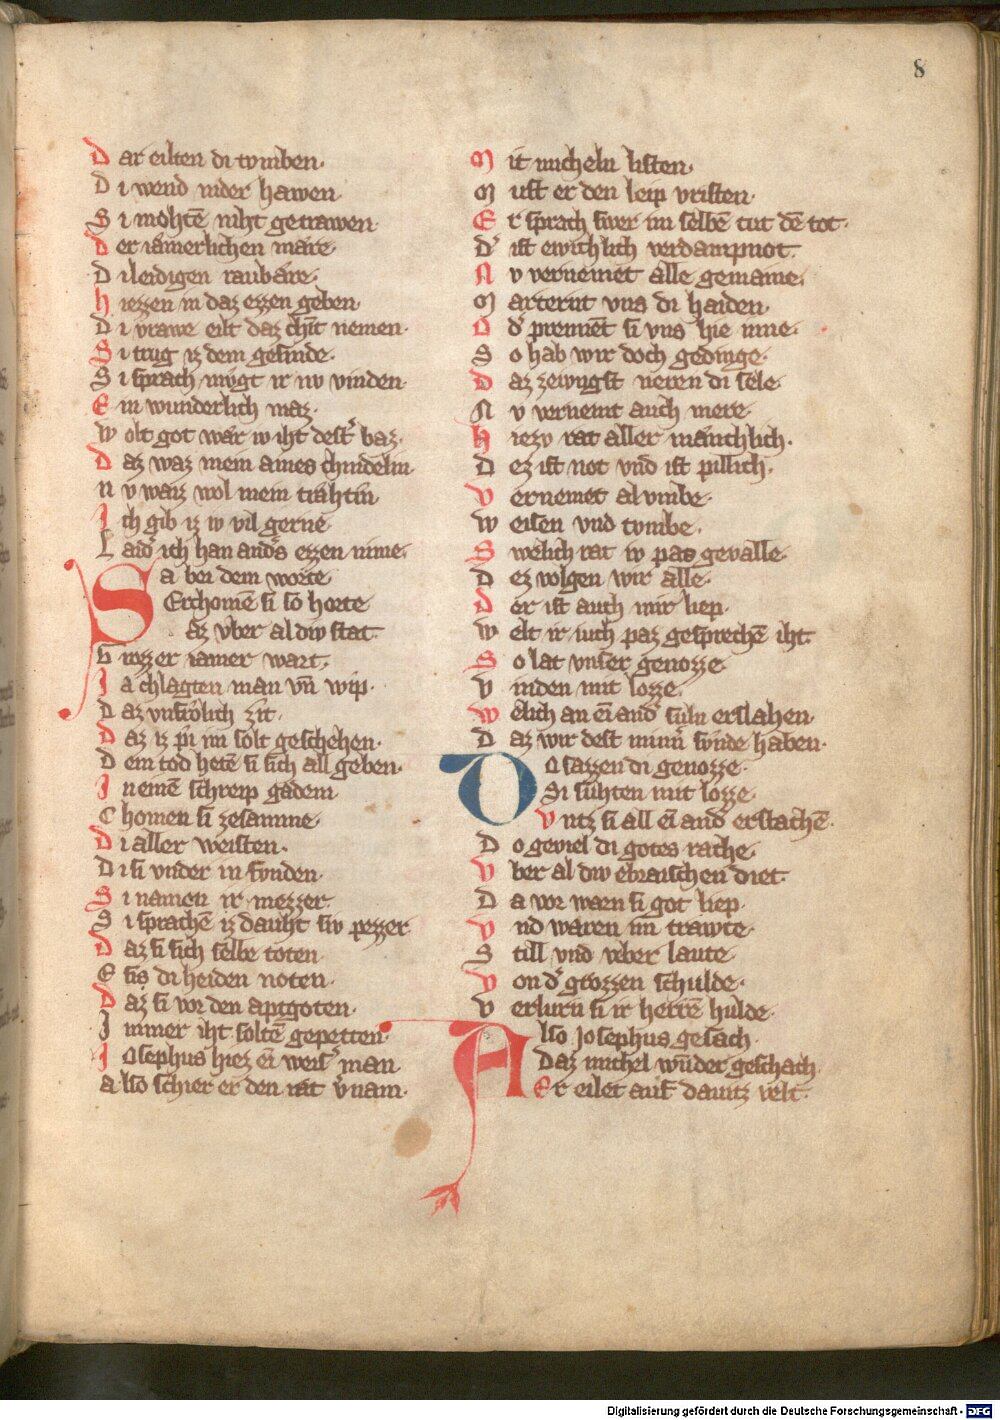 8
Dar eilten di tvmben.
Di wend nider hawen.
Si mohtē niht getrawen.
Der iamerlichen mare.
Di leidigen raubare.
Hiezzen in daz ezzen geben.
Di vrawe eilt daz chīt nemen.
Si trug iz dem gesinde.
Si sprach mvgt ir nv vinden.
Ein wunderlich maz.
Wolt got wār iv iht dest̾ baz.
Daz waz mein aines chindelin.
Nv waiz wol mein trahtin
Ich gib iz iv vil gerne.
Laid̾ ich han and̾s ezzen nime.
Sa bei dem worte
Erchomē si so horte
Daz vber al div stat.
Grozzer iamer wart.
Ja chlagten man vn̄ wip.
Daz vnfrölich zit.
Daz iz p̾i im solt geschehen.
Dem tod hetē si sich all geben.
In einē schreip gadem
Chomen si zesamme.
Di aller weisten.
Di si vnder in fvnden.
Si namen ir mezzer.
Si sprachē iz dauht siv pezzer
Daz si sich selbe toten
E sis di heiden noten.
Daz si vor den aptgoten.
Immer iht soltē gepetten.
Josephus hiez ei weis̾ man
Also schier er den rat v̾nam.
Mit micheln listen.
Must er den leip vristen.
Er sprach swer im selbē tut dē tot.
D̾ ist ewichlich verdampnot.
Nv vernemet alle gemaine.
Marternt vns di haiden.
Od̾ prennēt si vns hie inne.
So hab wir doch gedinge.
Daz zewngst neren di sele.
Nv vernemt auch mere.
Hiezv rat aller manchlich.
Dez ist not vnd ist pillich.
Vernemet al vmbe.
Weisen vnd tvmbe.
Swelich rat iv pas gevalle.
Dez volgen wir alle.
Der ist auch mir liep.
Welt ir iuch paz gesprechē iht
So lat vnser genozze.
Vinden mit lozze.
Welich an ei and̾ suln erslahen.
Daz wir dest minn̾ sv̄nde haben.
Do sazzen di genozze.
Si sūhten mit lozze.
Vntz si all ei and̾ erstachē.
Do geviel di gotes rache.
Vber al div ebraischen diet.
Da vor warn si got liep.
Vnd waren im trawte.
Still vnd vber laute.
Von d̾ grozzen schulde.
Verlurn si ir herrē hulde.
Also Josephus gesach.
Daz michel wūder geschach.
Er eilet auf dauitz velt.
Digitalisierung gefördert durch die Deutsche Forschungsgemeinschaft - DFG